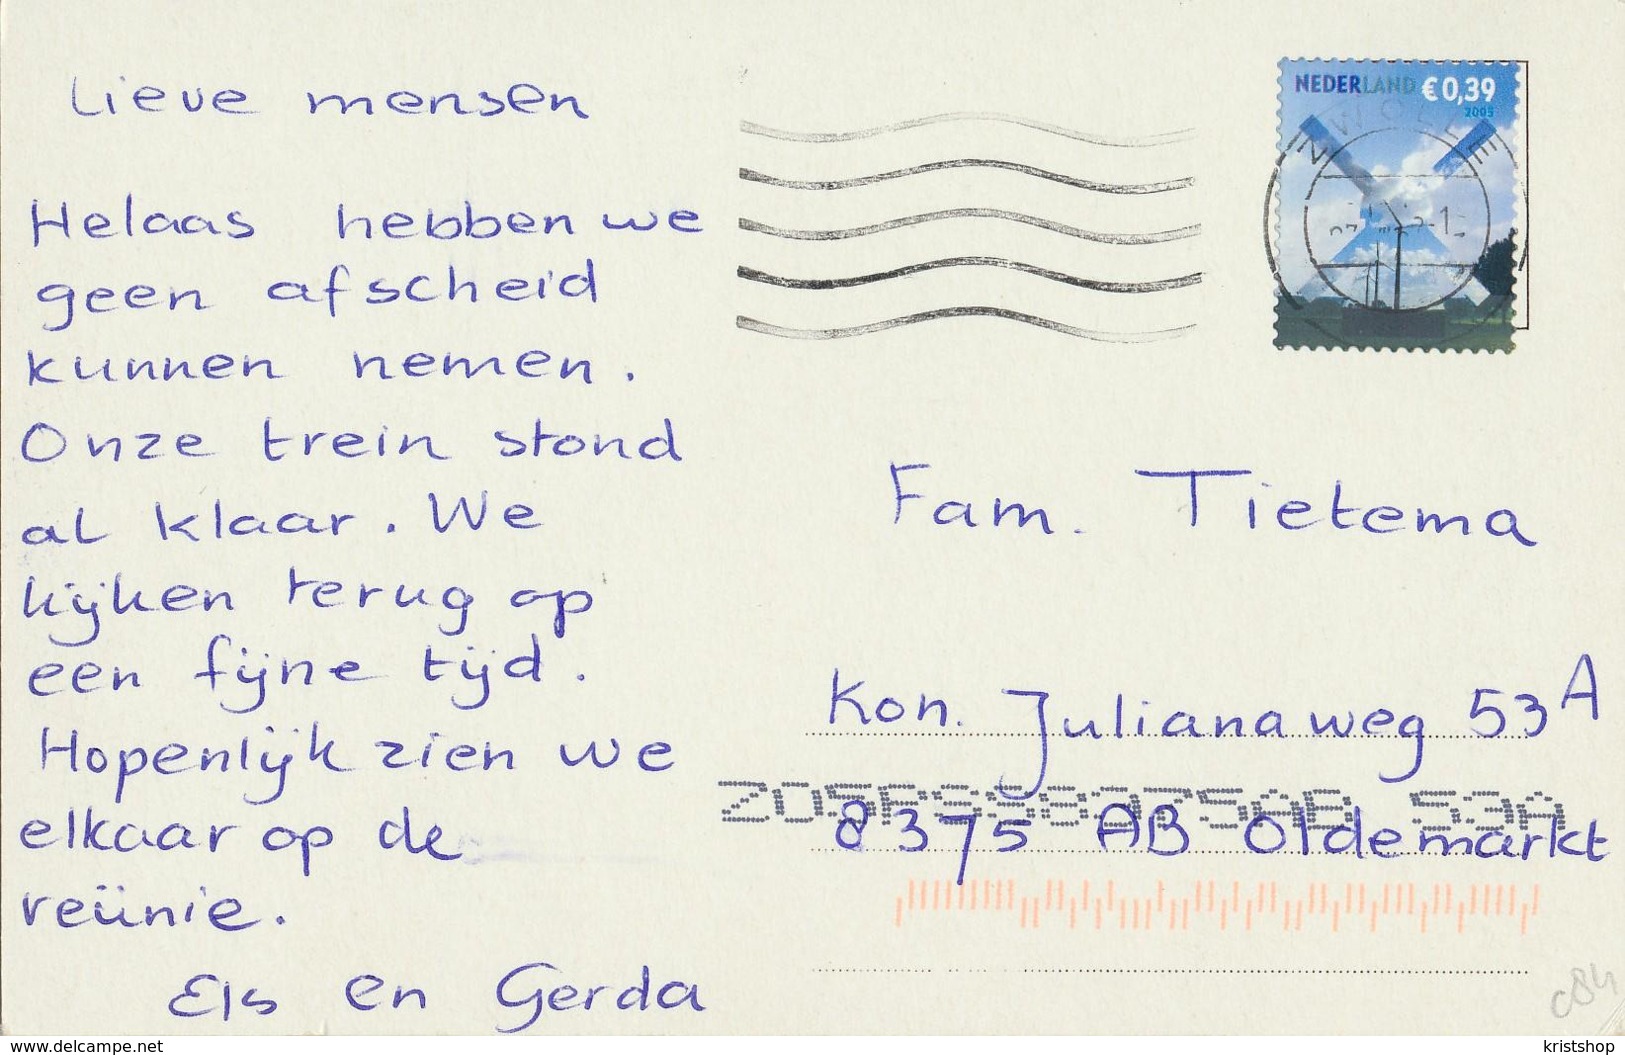 Lieve mensen
Helaas hebben we
geen afscheid
kunnen nemen.
Onze trein stond
al klaar. We
kijken terug op
een fijne tijd.
Hopenlijk zien we
elkaar op de
reünie.
Els en Gerda
NEDERLAND €0,39
2005
ZWOLLE
Fam. Tietema
Kon. Julianaweg 53A
8375AB 53A
8375 AB Oldemarkt
c84
www.delcampe.net
kristshop